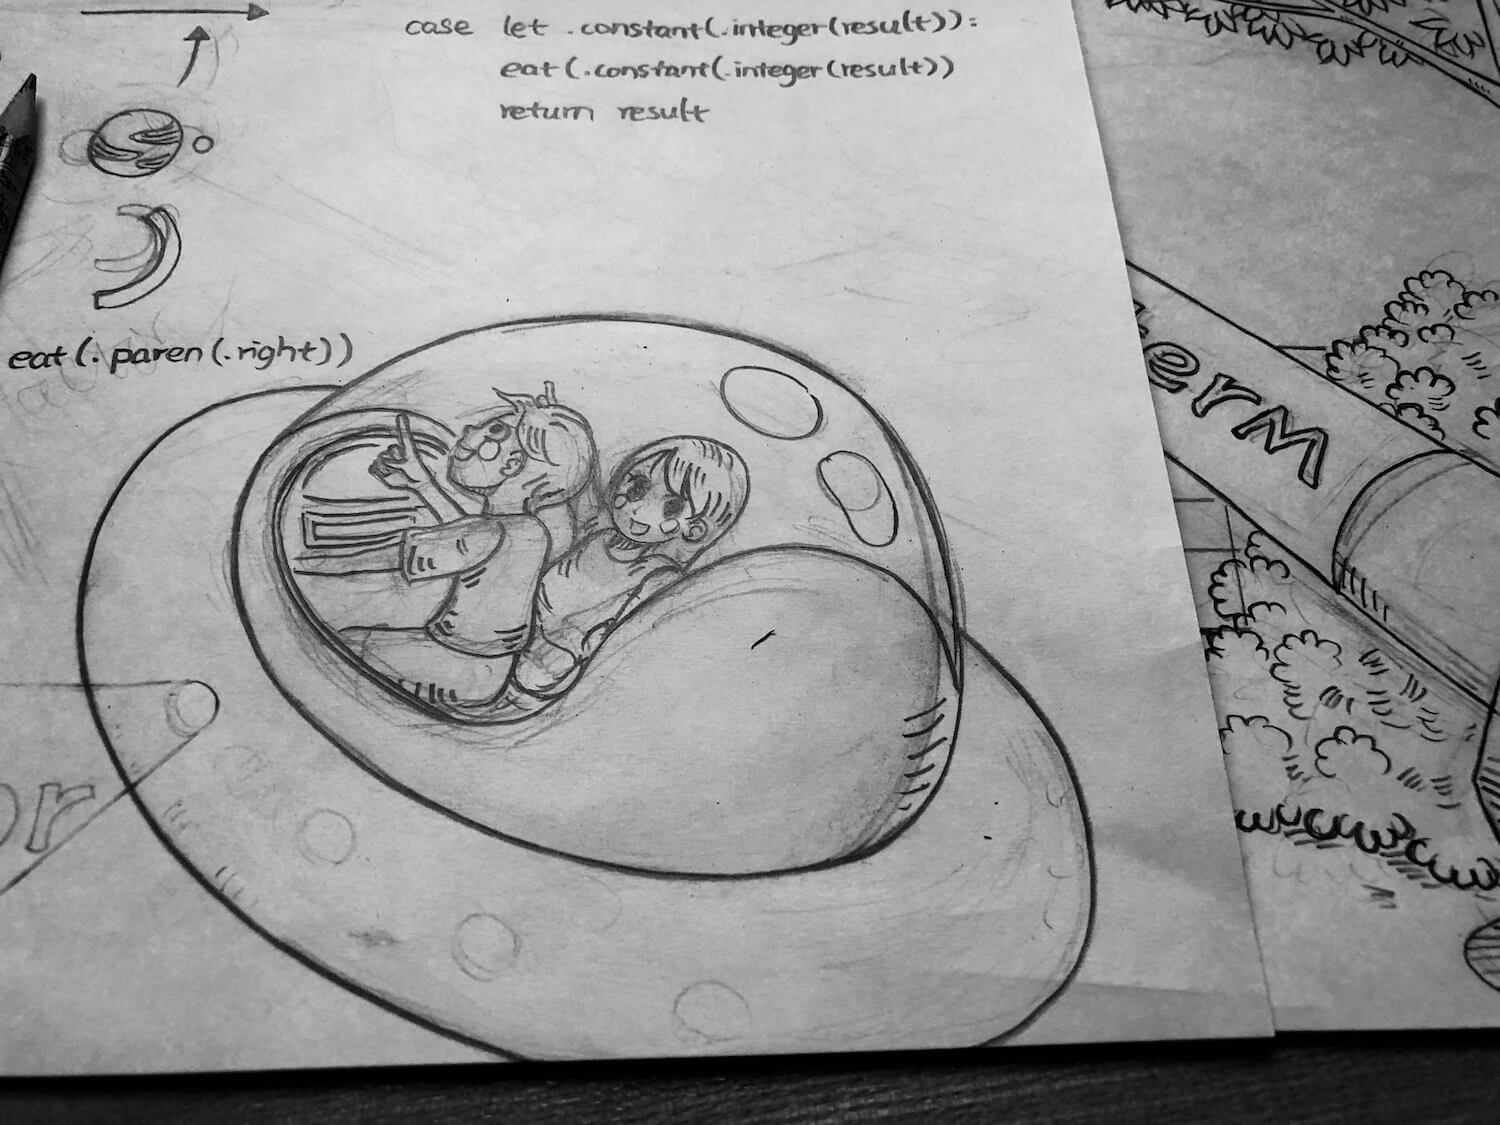 case let .constant(.integer(result)):
eat(.constant(.integer(result))
return result
eat(.paren(.right))
term
or